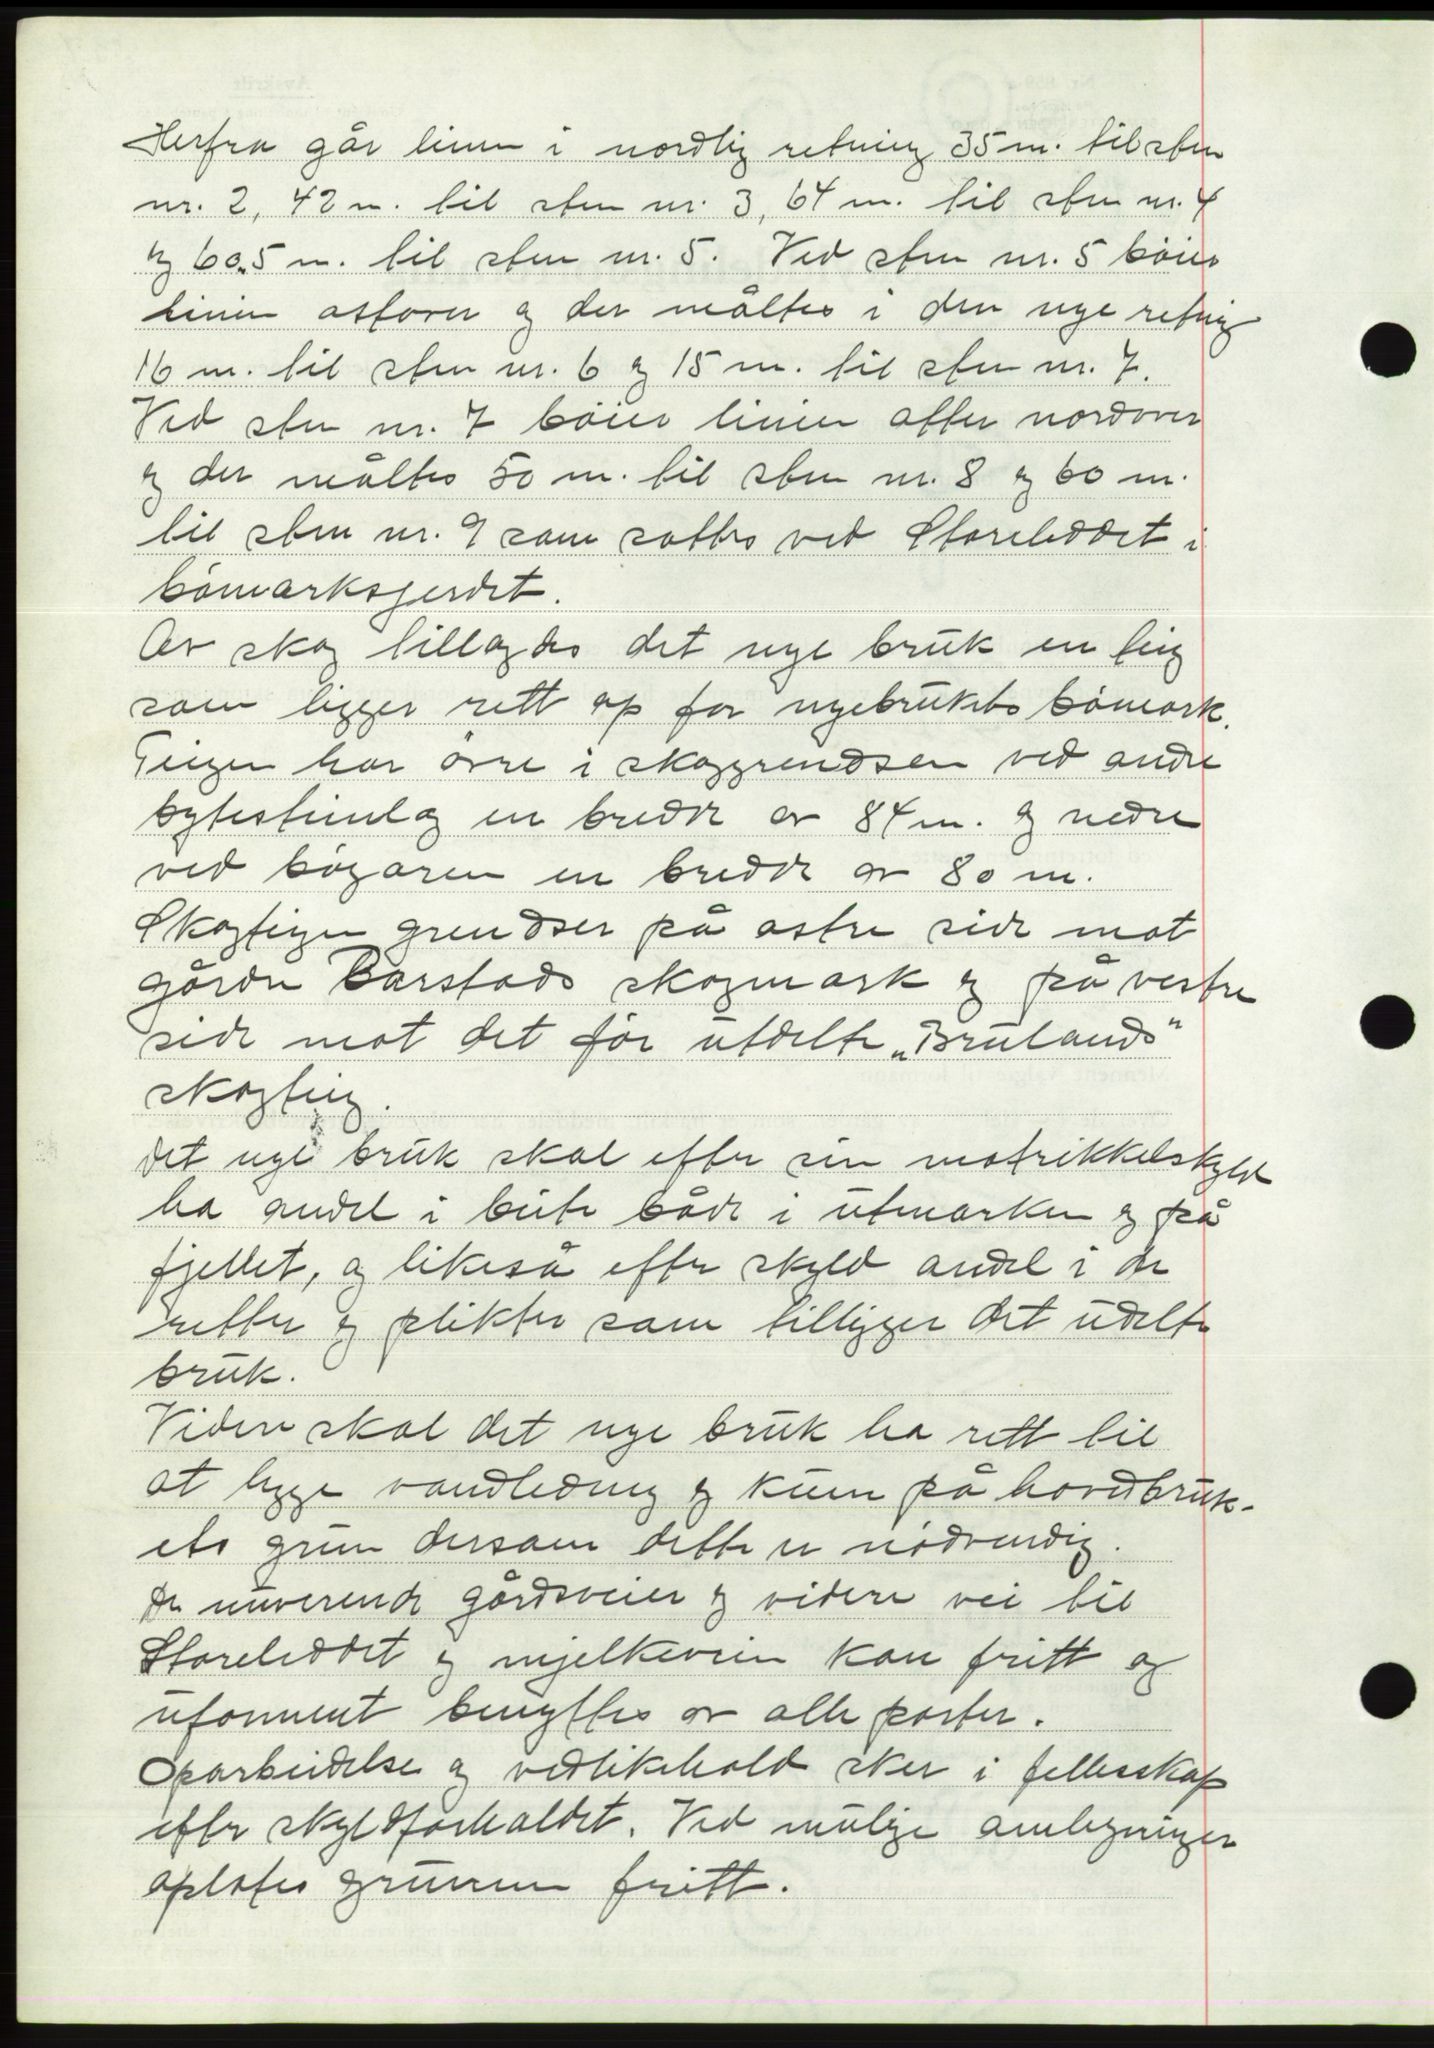 Herfra går linien i nordlig retning 35 m. til sten
nr. 2, 42 m. til sten nr. 3, 64 m. til sten nr. 4
og 60.5 m. til sten nr. 5. Ved sten nr. 5 bøier
linien østover og der måltes i den nye retning
16 m. til sten nr. 6 og 15 m. til sten nr. 7.
Ved sten nr. 7 bøier linien atter nordover
og der måltes 50 m. til sten nr. 8 og 60 m.
til sten nr. 9 som sattes ved Storeleddet i
bømarksgjerdet.
Av skog tillagdes det nye bruk en teig
som ligger rett op for nyebrukets bømark.
Teigen har øvre i skoggrendsen ved andre
bytesteinlag en bredde av 84 m. og nedre
ved bøgaren en bredde av 80 m.
Skogteigen grendser på østre side mot
gården Barstads skogmark og på vestre
side mot det før utdelte „Brulands"
skogteig.
Det nye bruk skal efter sin matrikkelskyld
ha andel i beite både i utmarken og på
fjellet, og likeså efter skyld andel i de
retter og plikter som tilligger det udelte
bruk.
Videre skal det nye bruk ha rett til
at legge vandledning og kum på hovedbruk-
ets grun dersom dette er nødvendig.
De nuverende gårdsveier og videre vei til
Storeleddet og mjelkeveien kan fritt og
uforment benyttes av alle parter.
Oparbeidelse og vedlikehold sker i fellesskap
efter skyldforholdet. Ved mulige omlegninger
oplates grunnen fritt.